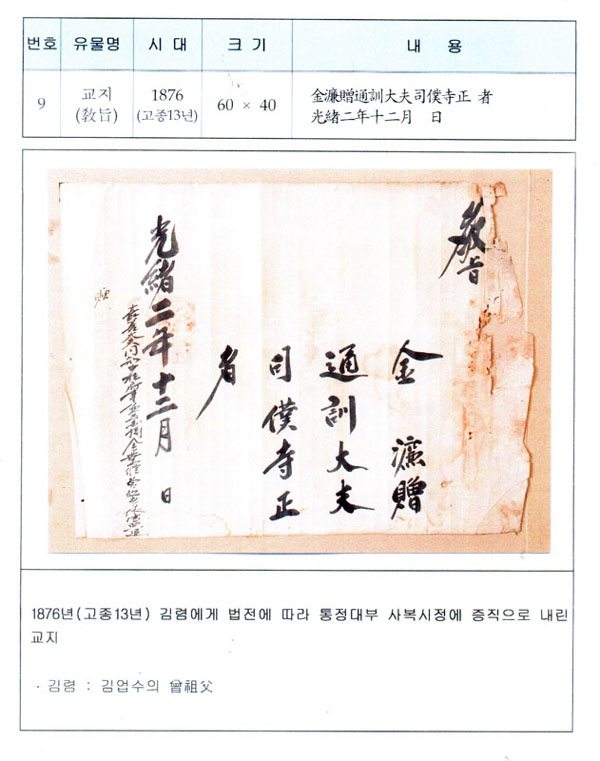 번호 유물명 시 대 크 기 내 용
9 교지 (敎旨) 1876 (고종13년) 60 × 40 金濂贈通訓大夫司僕寺正 者
光緖二年十二月 日
敎旨
金 濂贈
通訓大夫
司僕寺正
者
光緖二年十二月 日
1876년(고종13년) 김렴에게 법전에 따라 통정대부 사복시정에 증직으로 내린
교지
· 김렴 : 김업수의 曾祖父